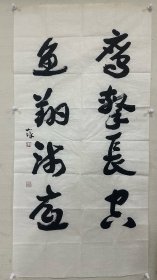 鹰击长空
鱼翔浅底